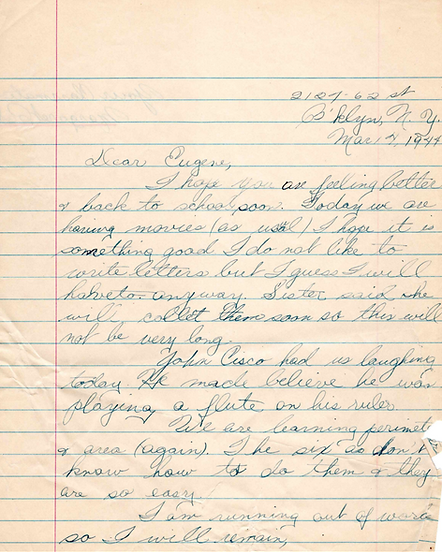 2127-62 st
B'klyn, N. Y.
Mar 7, 1944
Dear Eugene,
I hope you are feeling better
& back to school soon. Today we are
having movies (as usual) I hope it is
something good. I do not like to
write letters but I guess I will
haveto anyway. Sister said she
will collet them soon so this will
not be very long.
John Cisco had us laughing
today. He made believe he was
playing a flute on his ruler.
We are learning perimeter
& area (again). The six as don't
know how to do them & they
are so easy.
I am running out of words
so I will remain,